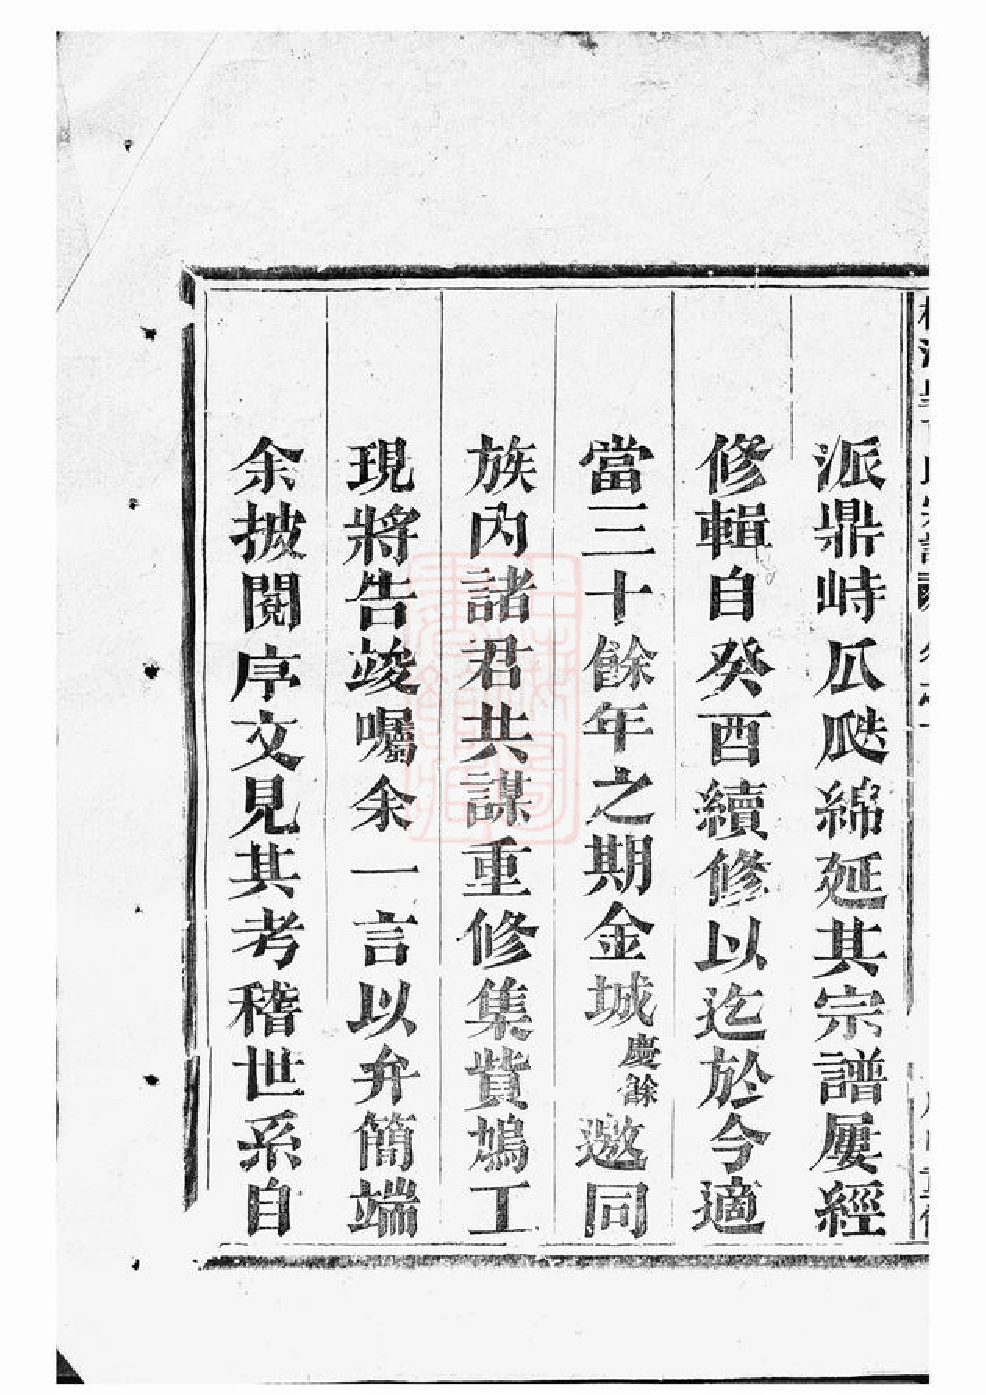 派鼎峙瓜瓞綿延其宗譜屢經
修輯自癸酉續修以迄於今適
當三十餘年之期金城慶餘邀同
族內諸君共謀重修集貲鳩工
現將告竣囑余一言以弁簡端
余披閱序文見其考稽世系自